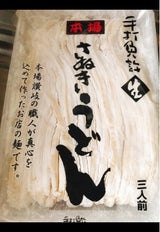 手打負許
生
本場
さぬき
うどん
本場讃岐の職人が真心を
込めて作ったお店の麺です。
三人前